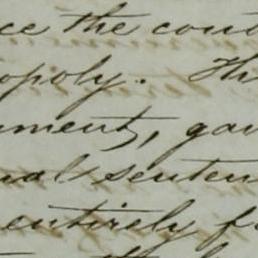 ce the cond
opoly. Th
ument, gav
nal senten
entirely f